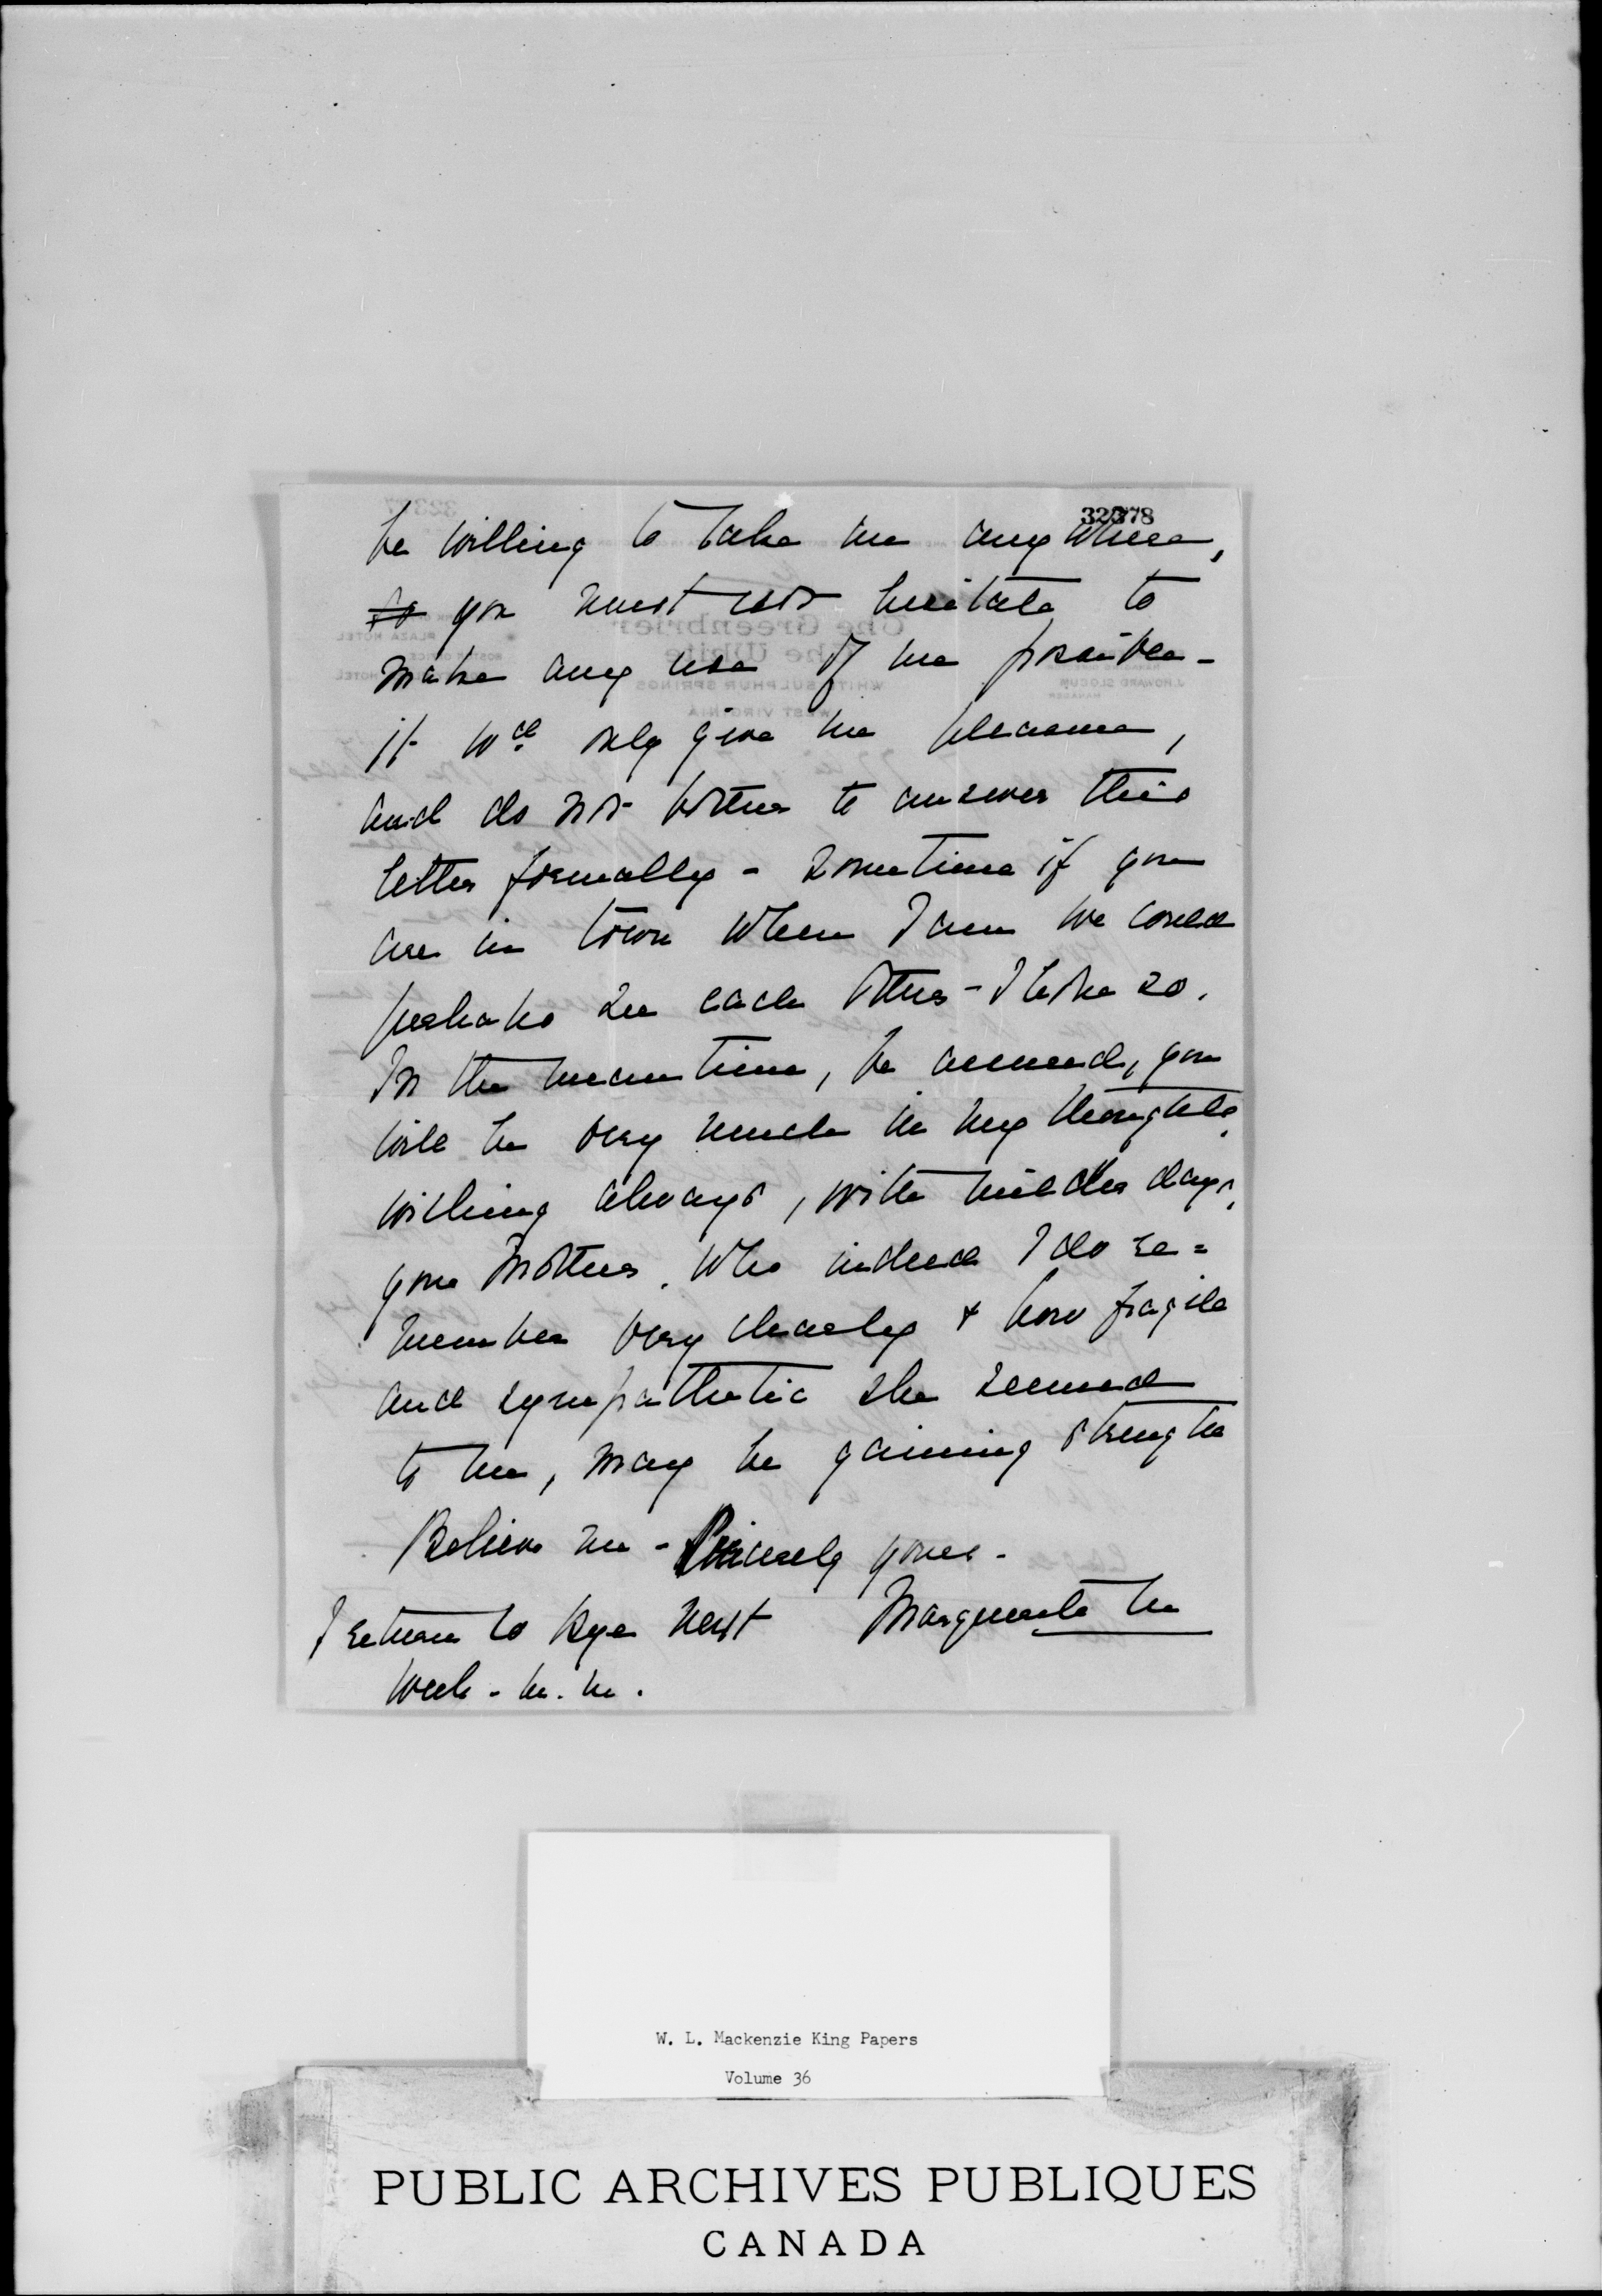 32378
be willing to take me anywhere,
so you must not hesitate to
make any use of me possible -
it wd only give me pleasure,
and do not bother to answer this
letter formally - Sometime if you
are in town when I am we could
perhaps see each other - I hope so.
In the meantime, be assured, you
will be very much in my thoughts,
wishing always, with milder days,
your Mother. Who indeed I do re=
member very clearly & how fragile
and sympathetic she seemed
to me, may be gaining strength
Believe me - Sincerely yours -
I return to Rye next Marguerite
week - M. M.
W. L. Mackenzie King Papers
Volume 36
PUBLIC ARCHIVES PUBLIQUES
CANADA